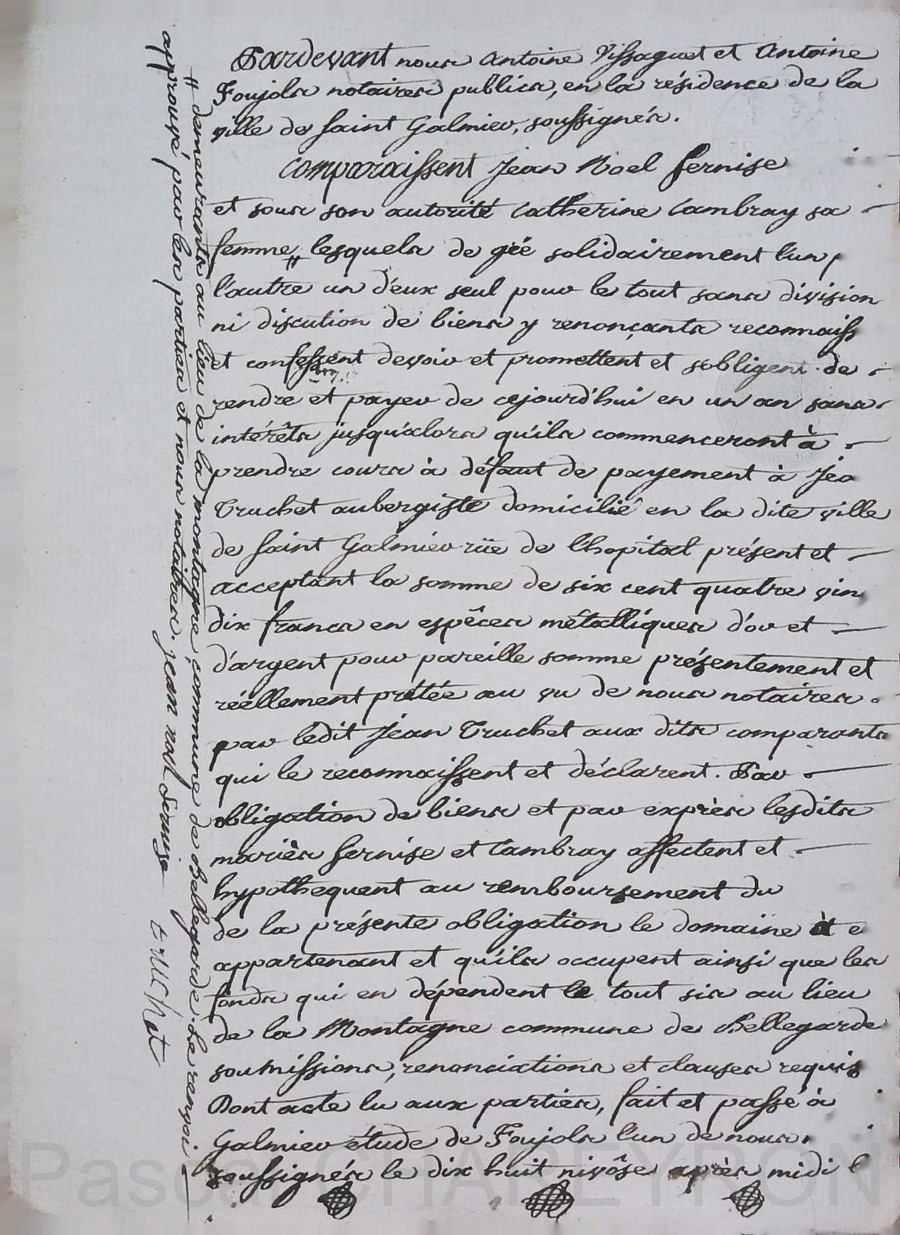 Pardevant nous Antoine Vissaguet et Antoine
Foujols notaires publics, en la résidence de la
ville de Saint Galmier, soussignés.
Comparaissent Jean Noel Fernise
et sous son autorité Catherine Cambray sa
femme, # lesquels de gré solidairement l'un p
l'autre un d'eux seul pour le tout sans division
ni discution de biens y renonçants reconnaiss
et confessent devoir et promettent et s'obligent de
rendre et payer de cejourd'hui en un an sans
intérêts jusqu'alors qu'ils commenceront à
prendre cours à défaut de payement à Jea
Truchet aubergiste domicilié en la dite ville
de Saint Galmier rüe de lhopital présent et
acceptant la somme de six cent quatre vin
dix francs en espêces métalliques d'or et
d'argent pour pareille somme présentement et
réellement prêtée au vu de nous notaires
par ledit Jean Truchet aux dits comparants
qui le reconnaissent et déclarent. Par
obligation de biens et par exprès lesdits
mariés Fernise et Cambray affectent et
hypothequent au remboursement du
de la présente obligation le domaine à e
appartenant et qu'ils occupent ainsi que les
fonds qui en dépendent le tout sis au lieu
de la Montagne commune de Bellegarde
soumissions, renonciations et clauses requis
Dont acte lu aux parties, fait et passé à
Galmier étude de Foujols l'un de nous
soussignés le dix huit nivôse après midi l
# demeurants au lieu de la montagne commune de Bellegarde. Le renvoi
approuvé par les parties et nous notaires. jean noel fernise
Pascal CHAREYRON